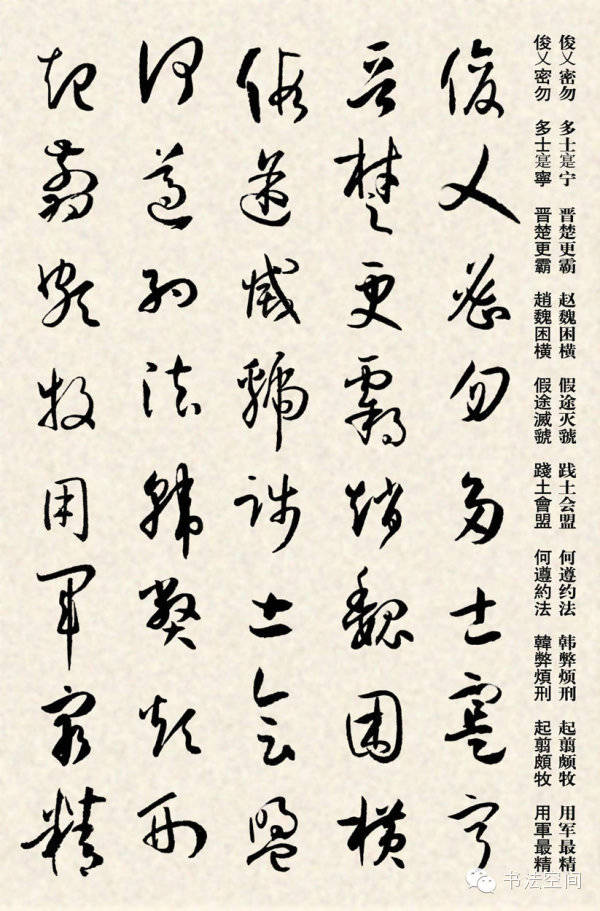 俊乂密勿 多士寔宁 晋楚更霸 赵魏困横 假途灭虢 践土会盟 何遵约法 韩弊烦刑 起翦颇牧 用军最精
俊乂密勿 多士寔寧 晋楚更霸 趙魏困横 假途滅虢 踐土會盟 何遵約法 韓弊煩刑 起翦頗牧 用軍最精
俊乂密勿多士寔寧
晋楚更霸趙魏困横
假途滅虢踐土會盟
何遵約法韓弊煩刑
起翦頗牧用軍最精
书法空间